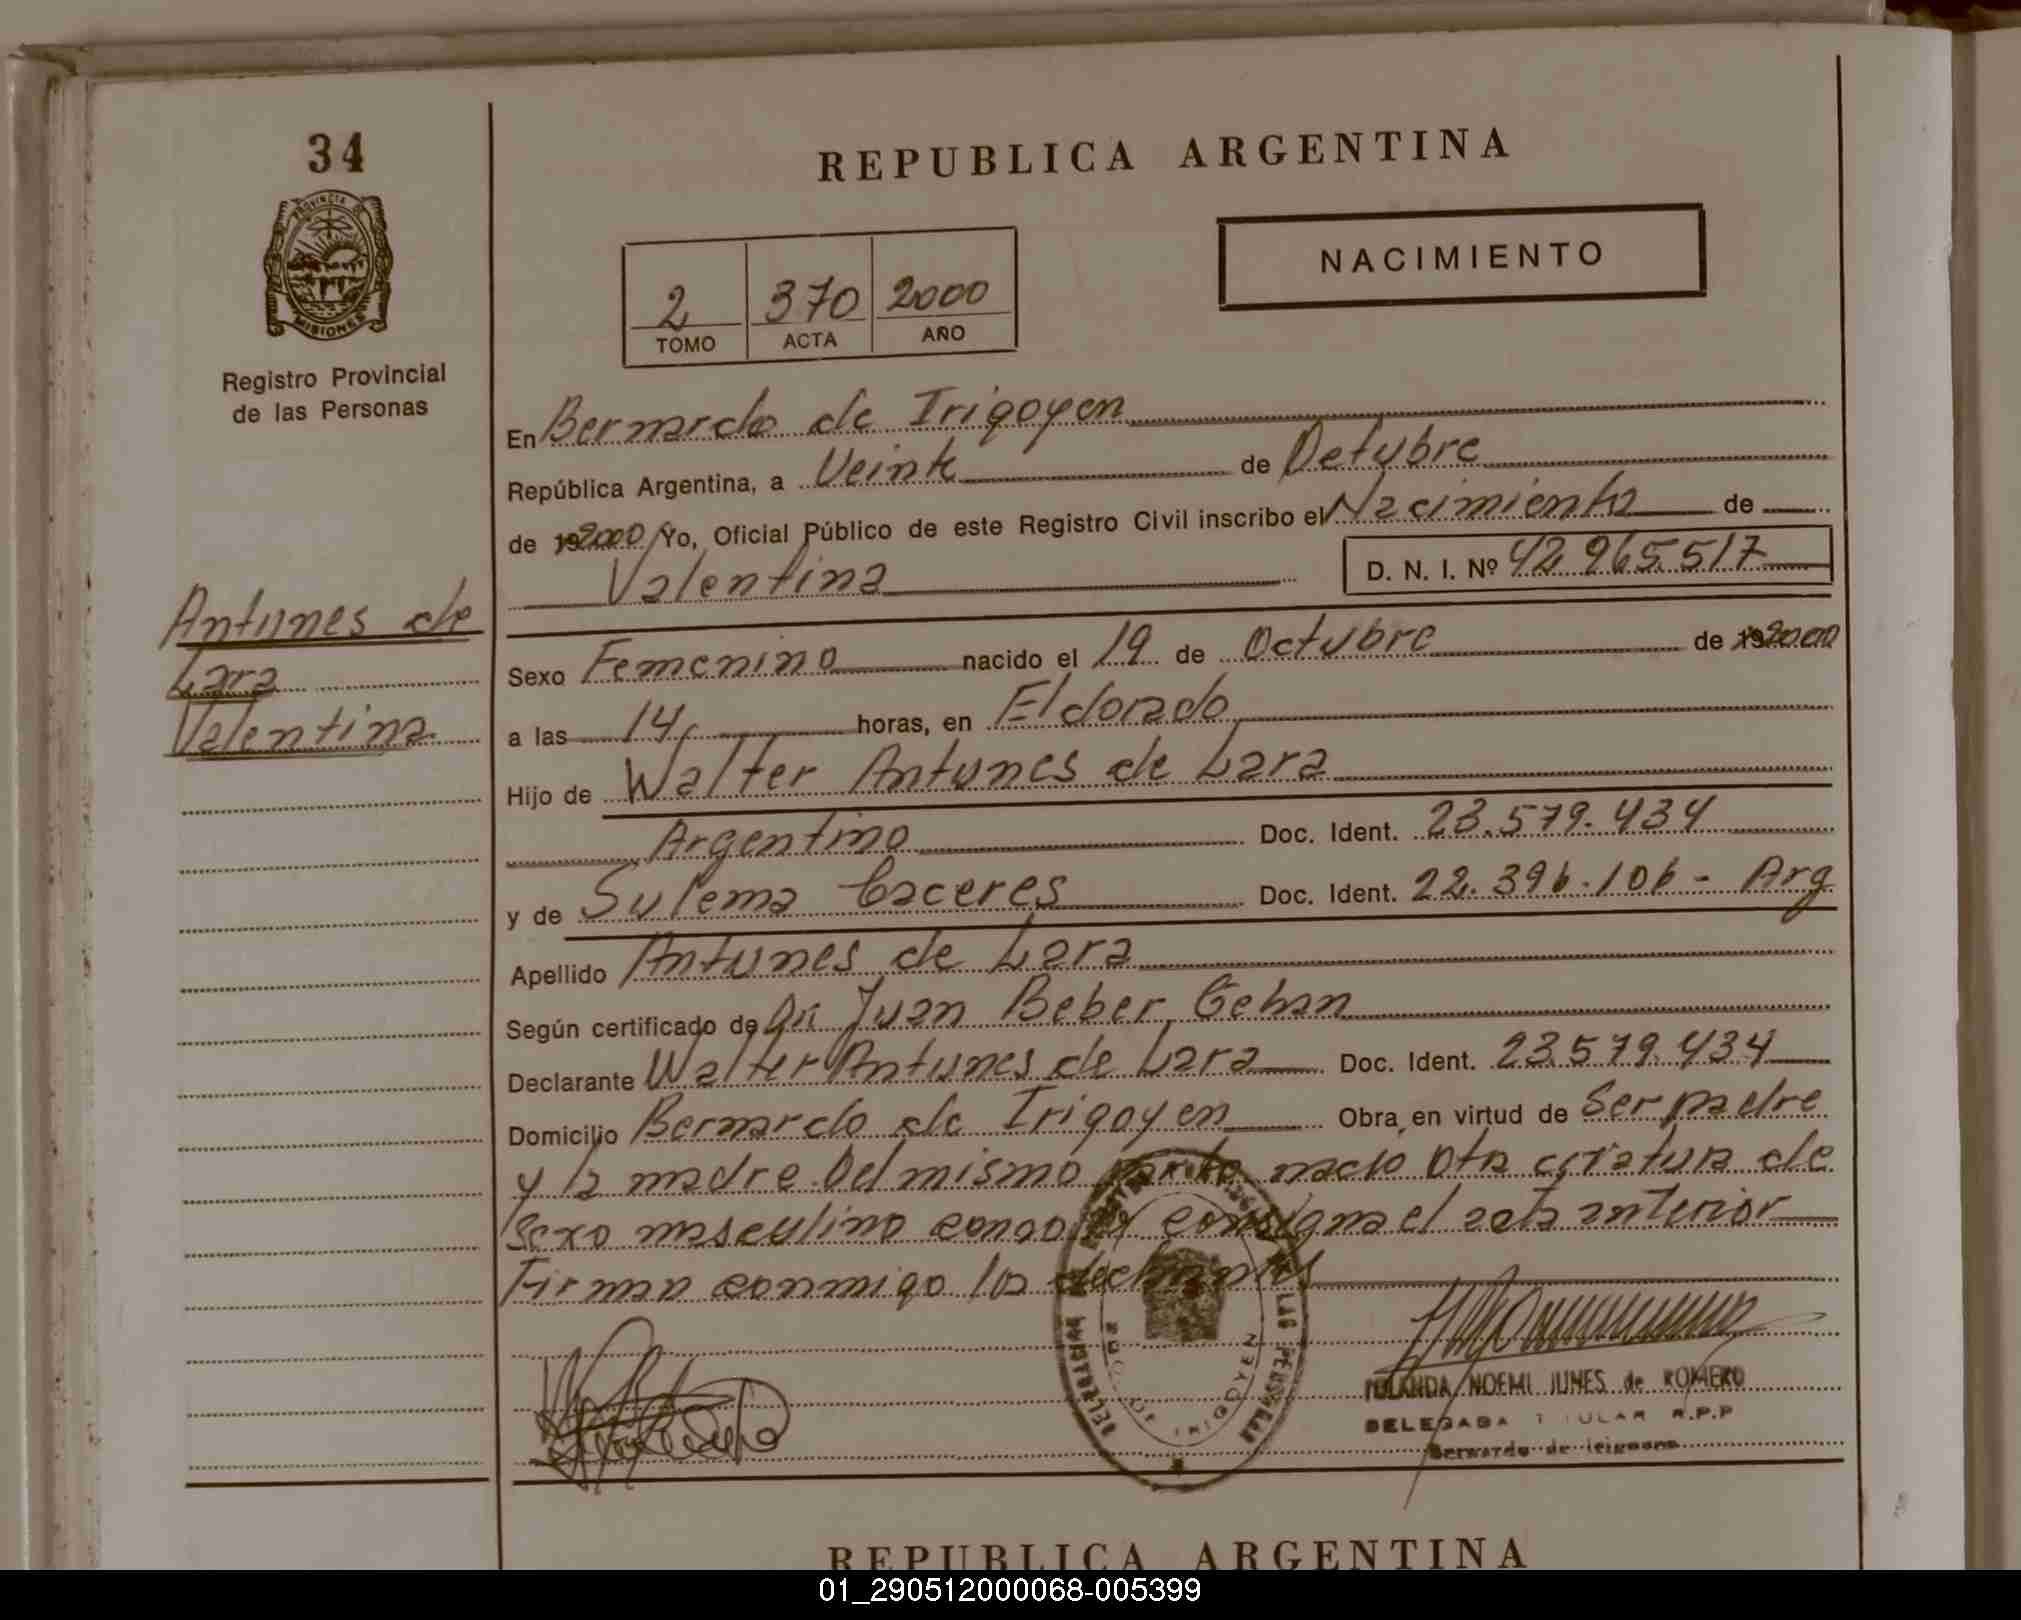 34
REPUBLICA ARGENTINA
NACIMIENTO
PROVINCIA DE
MISIONES
Registro Provincial
de las Personas
2 370 2000
TOMO ACTA AÑO
En Bernardo de Irigoyen
República Argentina, a Veinte de Octubre
de 192000 Yo, Oficial Público de este Registro Civil inscribo el Nacimiento de
Valentina D. N. I. Nº 42.965.517
Antunes de
Lara
Valentina
Sexo Femenino nacido el 19 de Octubre de 192000
a las 14, horas, en Eldorado
Hijo de Walter Antunes de Lara
Argentino Doc. Ident. 23.579.434
y de Sulema Caceres Doc. Ident. 22.396.106 - Arg
Apellido Antunes de Lara
Según certificado de Dr. Juan Beber
Declarante Walter Antunes de Lara Doc. Ident. 23.579.434
Domicilio Bernardo de Irigoyen Obra en virtud de Ser padre
y la madre. Del mismo parto nacio otra criatura de
Sexo masculino consigna el acta anterior
Firman conmigo los declarantes
NOEMI JUNES de ROMERO
DELEGADA TITULAR R.P.P
Bernardo de Irigoyen
BDO. DE IRIGOYEN
REPUBLICA ARGENTINA
01_290512000068-005399